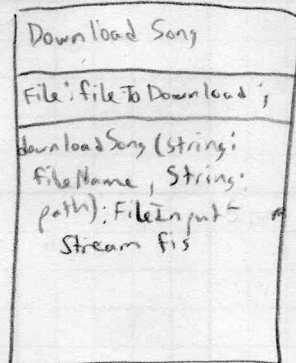 Download Song
File: fileToDownload;
downloadSong (String:
fileName, String:
path): FileInput-
Stream fis